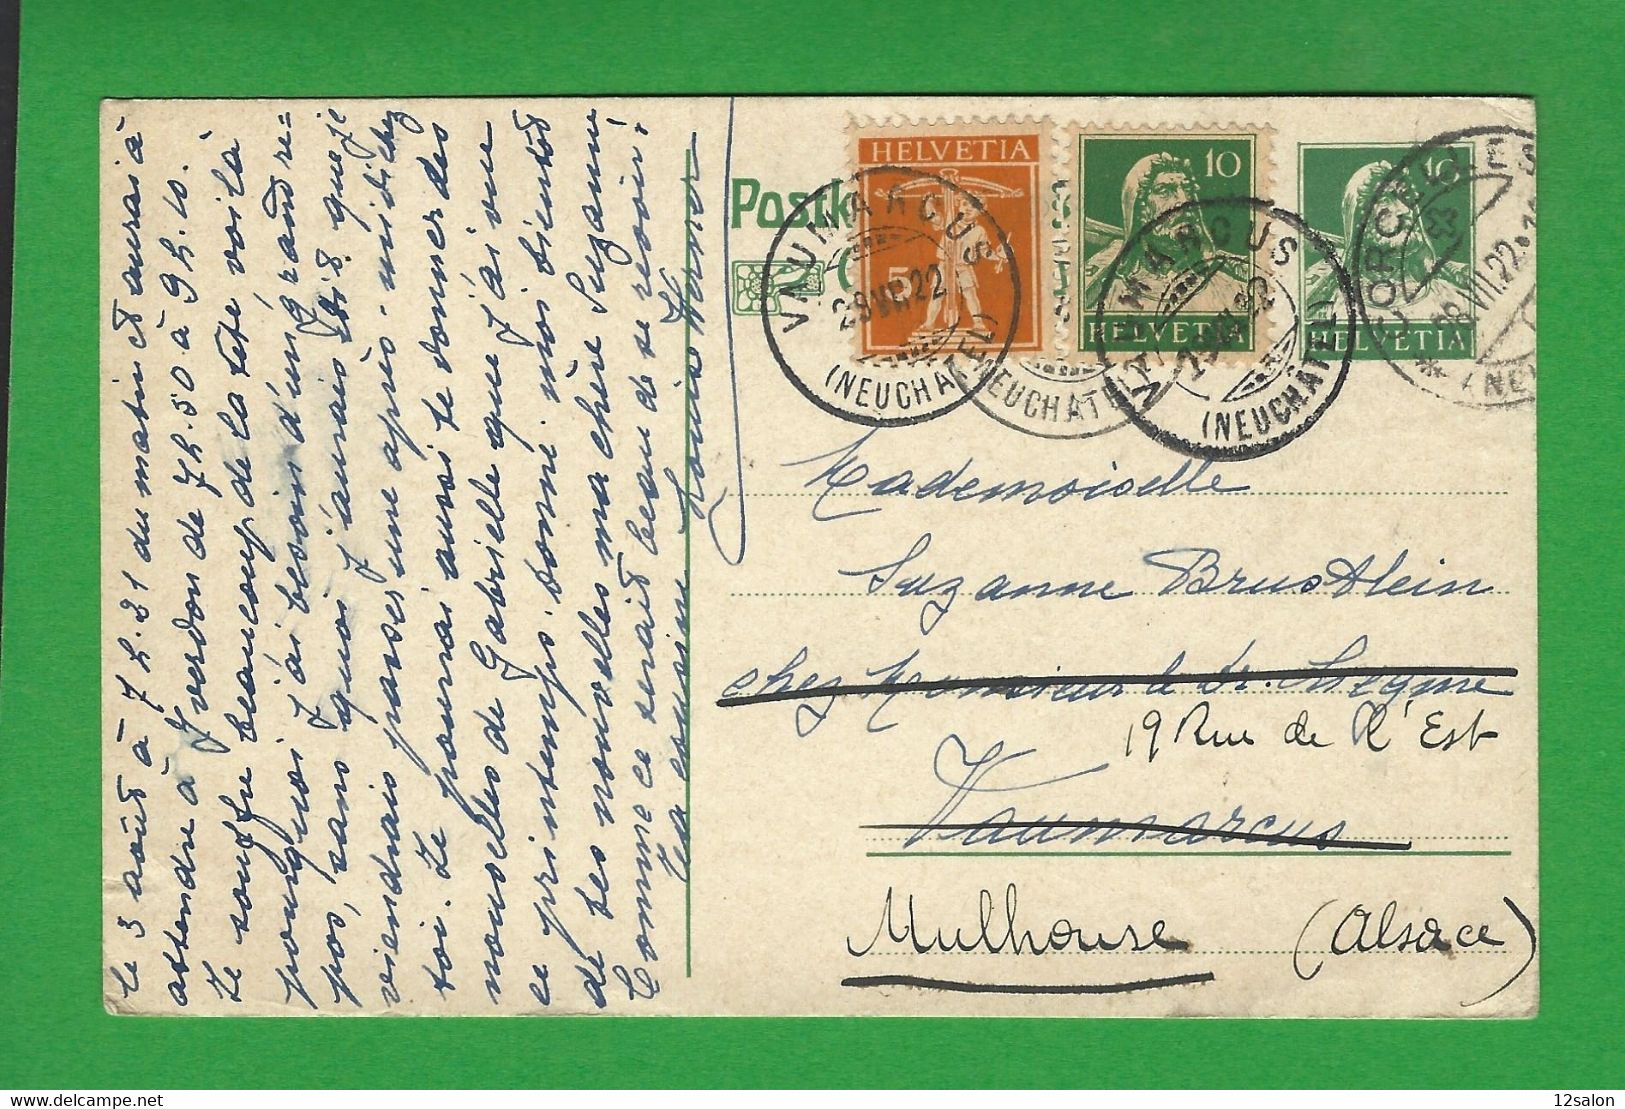 le 3 août à 7 h. 21 du matin et aurais à
attendre à Yverdon de 7h.50 à 9h.10.
Je souffre beaucoup de la tête voilà
pourquoi j'ai besoin d'un grand re=
pos, sans quoi j'aurais dis que je
viendrais passer une après-midi chez
toi. Je pourrai aussi te donner des
nouvelles de Gabrielle que j'ai vue
ce printemps. Donne moi bientôt
de tes nouvelles ma chère Suzanne
Comme ce serait beau de se revoir!
Ta cousine Louise Werner
Postk
HELVETIA
5
10
HELVETIA
10
HELVETIA
VAUMARCUS
28.VII.22
(NEUCHATEL)
VAUMARCUS
(NEUCHATEL)
CORCELLES
28.VII.22
Mademoiselle
Suzanne Brustlein
chez Monsieur le Dr.
19 Rue de l'Est
Vaumarcus
Mulhouse (Alsace)
12salon